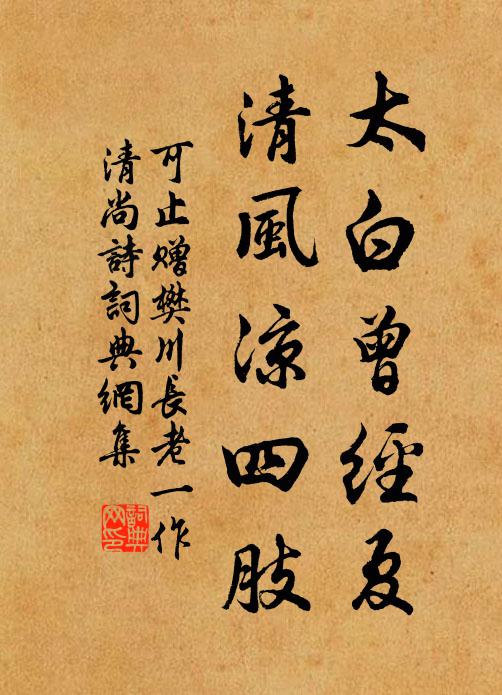 太白曾經夏
清風涼四肢
可止贈樊川長老一作
清尚詩詞典網集
詞典网印